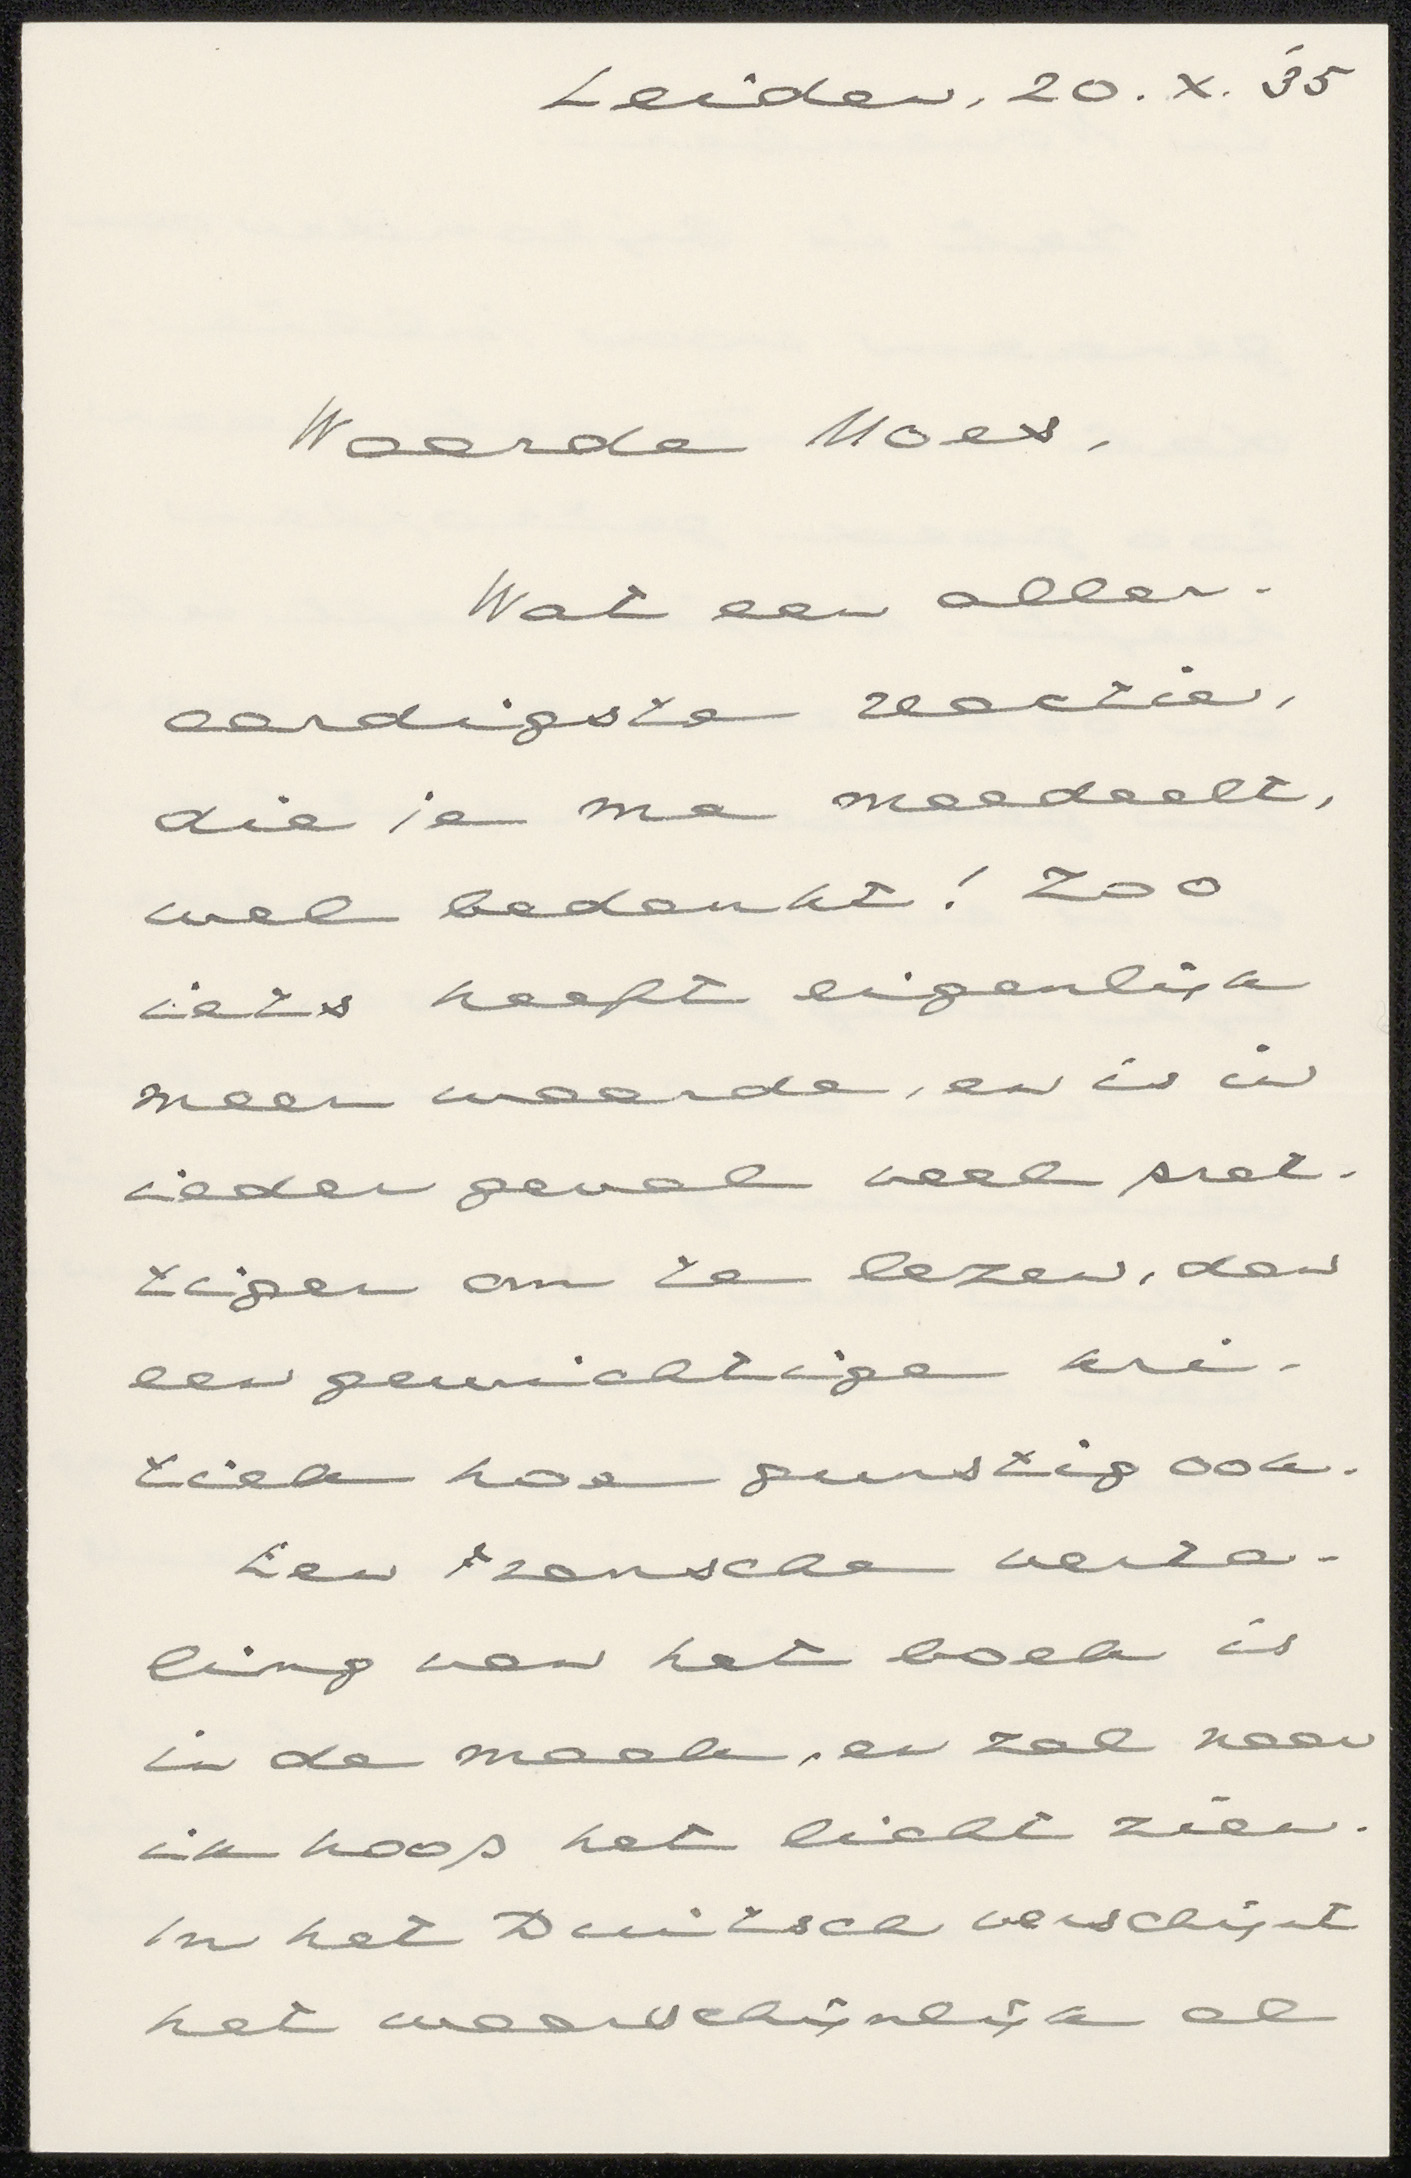 Leiden, 20. X. 35
Waarde Moes,
Wat een aller-
aardigste reactie,
die je me meedeelt,
wel bedankt! Zoo
iets heeft eigenlijk
meer waarde, en is in
ieder geval veel pret-
tiger om te lezen, dan
een gewichtige kri-
tiek hoe gunstig ook.
Een Fransche verta-
ling van het boek is
in de maak, en zal naar
ik hoop het licht zien.
In het Duitsch verschijnt
het waarschijnlijk al